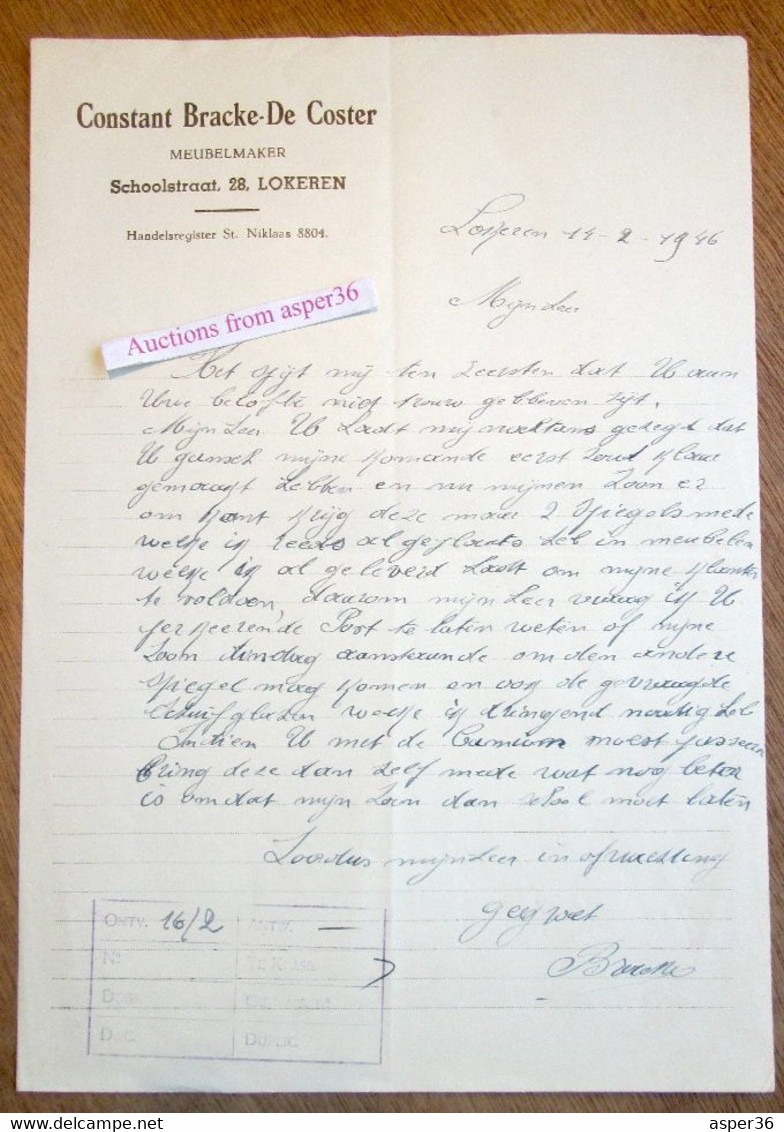 Constant Bracke-De Coster
MEUBELMAKER
Schoolstraat, 28, LOKEREN
Handelsregister St. Niklaas 8804.
Lokeren 14-2-1946
Auctions from asper36
Mijnheer
Het spijt mij ten zeersten dat U aan
Uwe belofte niet trouw gebleven zijt.
Mijnheer U hadt mij nochtans gezegd dat
U gansch mijne komande eerst zoud klaar
gemaakt hebben en nu mijnen zoon er
om komt krijg deze maar 2 spiegels mede
welke ik reeds al geplaats heb in meubelen
welke ik al geleverd hadt om mijne klanten
te voldoen, daarom mijnheer vraag ik U
per keerende Post te laten weten of mijne
zoon dinsdag aanstaande om den andere
spiegel mag komen en ook de gevraagde
schuifglazen welke ik dringend noodig heb
Indien U met de Camion moest passeeren
bring deze dan zelf mede wat nog beter
is omdat mijn zoon dan school moet laten
mijnheer in afwachting
gegroet
Bracke
ONTV. 16/2 ANTW. —
No
DUPLIC.
asper36